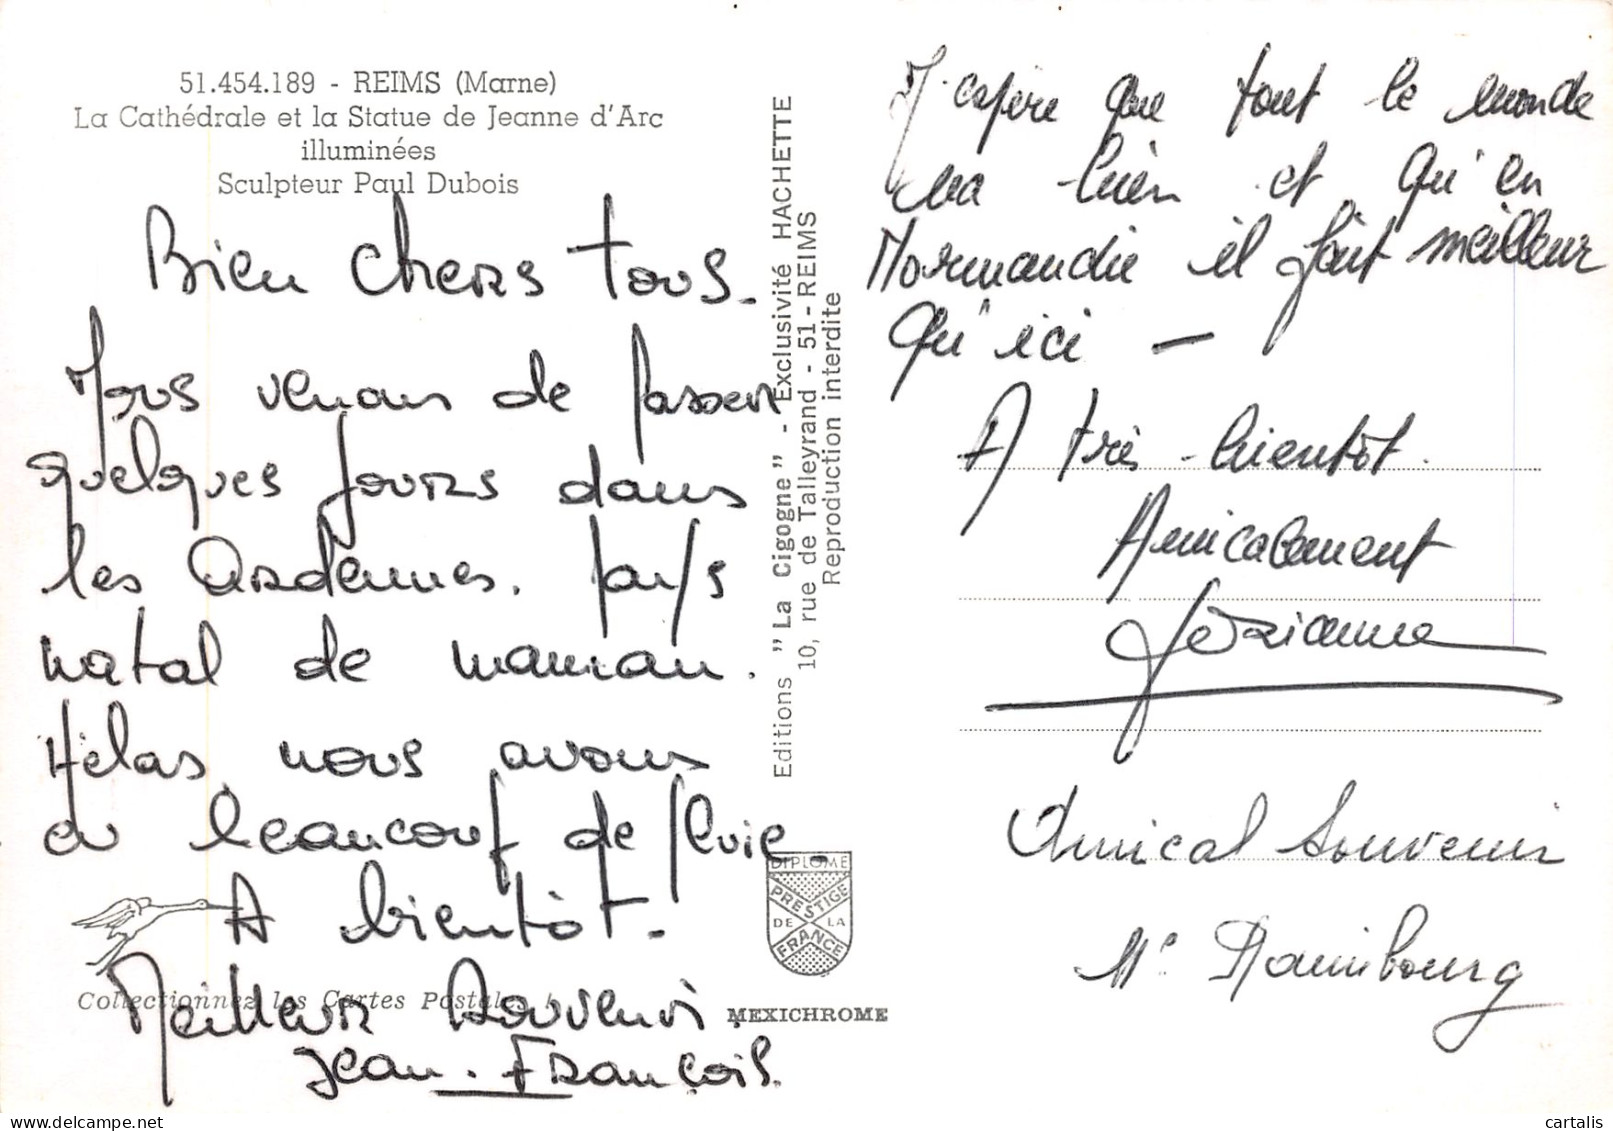 51.454.189 - REIMS (Marne)
La Cathédrale et la Statue de Jeanne d'Arc
illuminées
Sculpteur Paul Dubois
Bien chers tous.
Nous venons de passer
quelques jours dans
les Ardennes. pays
natal de maman.
Hélas nous avons
eu beaucoup de pluie -
A bientôt -
Meilleurs Souvenirs
Jean-François.
Collectionnez les Cartes Postales !
Editions "La Cigogne" - Exclusivité HACHETTE
10, rue de Talleyrand - 51 - REIMS
Reproduction interdite
DIPLOME
PRESTIGE
DE LA
FRANCE
MEXICHROME
J'espère que tout le monde
va bien et qu'en
Normandie il fait meilleur
qu'ici -
A très bientôt.
Amicalement
Amical Souvenir
cartalis